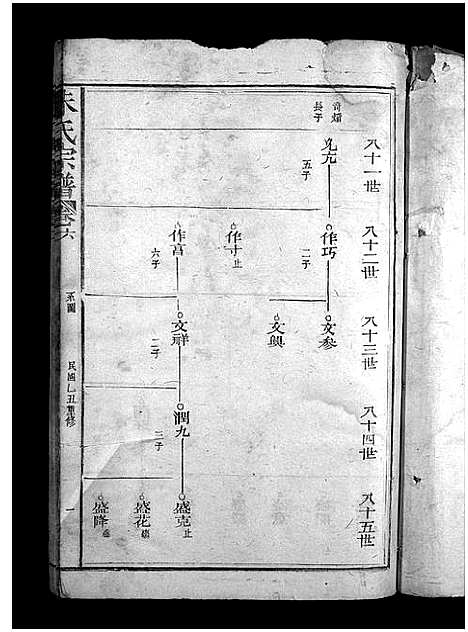 八十一世
八十二世
八十三世
八十四世
八十五世
長子
五子
作巧
二子
文參
文興
作寸 止
作富
六子
文祥
二子
潤九
三子
盛克 止
盛花
盛隆
朱氏宗譜
卷六
系圖
民國乙丑重修
一